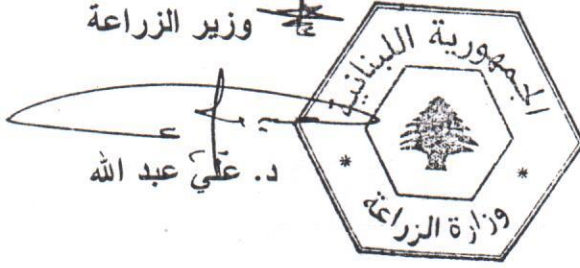 وزير الزراعة
د. علي عبد الله
الجمهورية اللبنانية
وزارة الزراعة